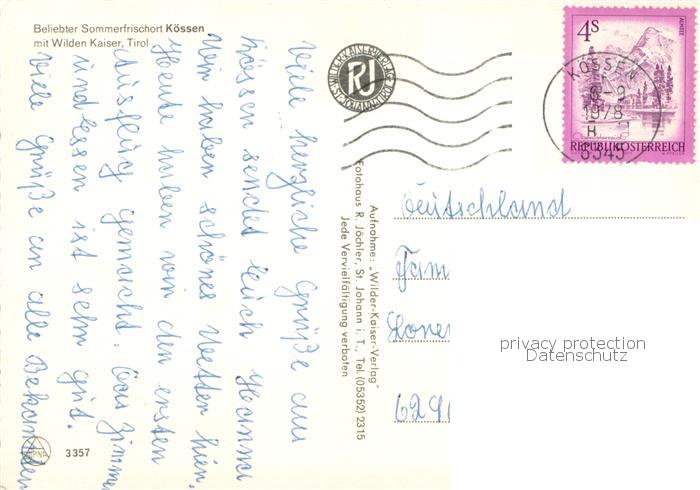 Beliebter Sommerfrischort Kössen
mit Wilden Kaiser, Tirol
Viele herzliche Grüße aus
Kössen sendet Euch Hanni
Wir haben schönes Wetter hier.
Heute haben wir den ersten
Ausflug gemacht. Das Zimmer
und Essen ist sehr gut.
Viele Grüße an alle Bekannten
3357
WILDER-KAISER-VERLAG
RJ
ST. JOHANN-TIROL
Aufnahme: „Wilder-Kaiser-Verlag"
Fotohaus R. Jöchler, St. Johann i. T., Tel. (05352) 2315
Jede Vervielfältigung verboten
4S
ALMSEE
REPUBLIK ÖSTERREICH
KÖSSEN
1978
6345
Deutschland
Fam
privacy protection
Datenschutz